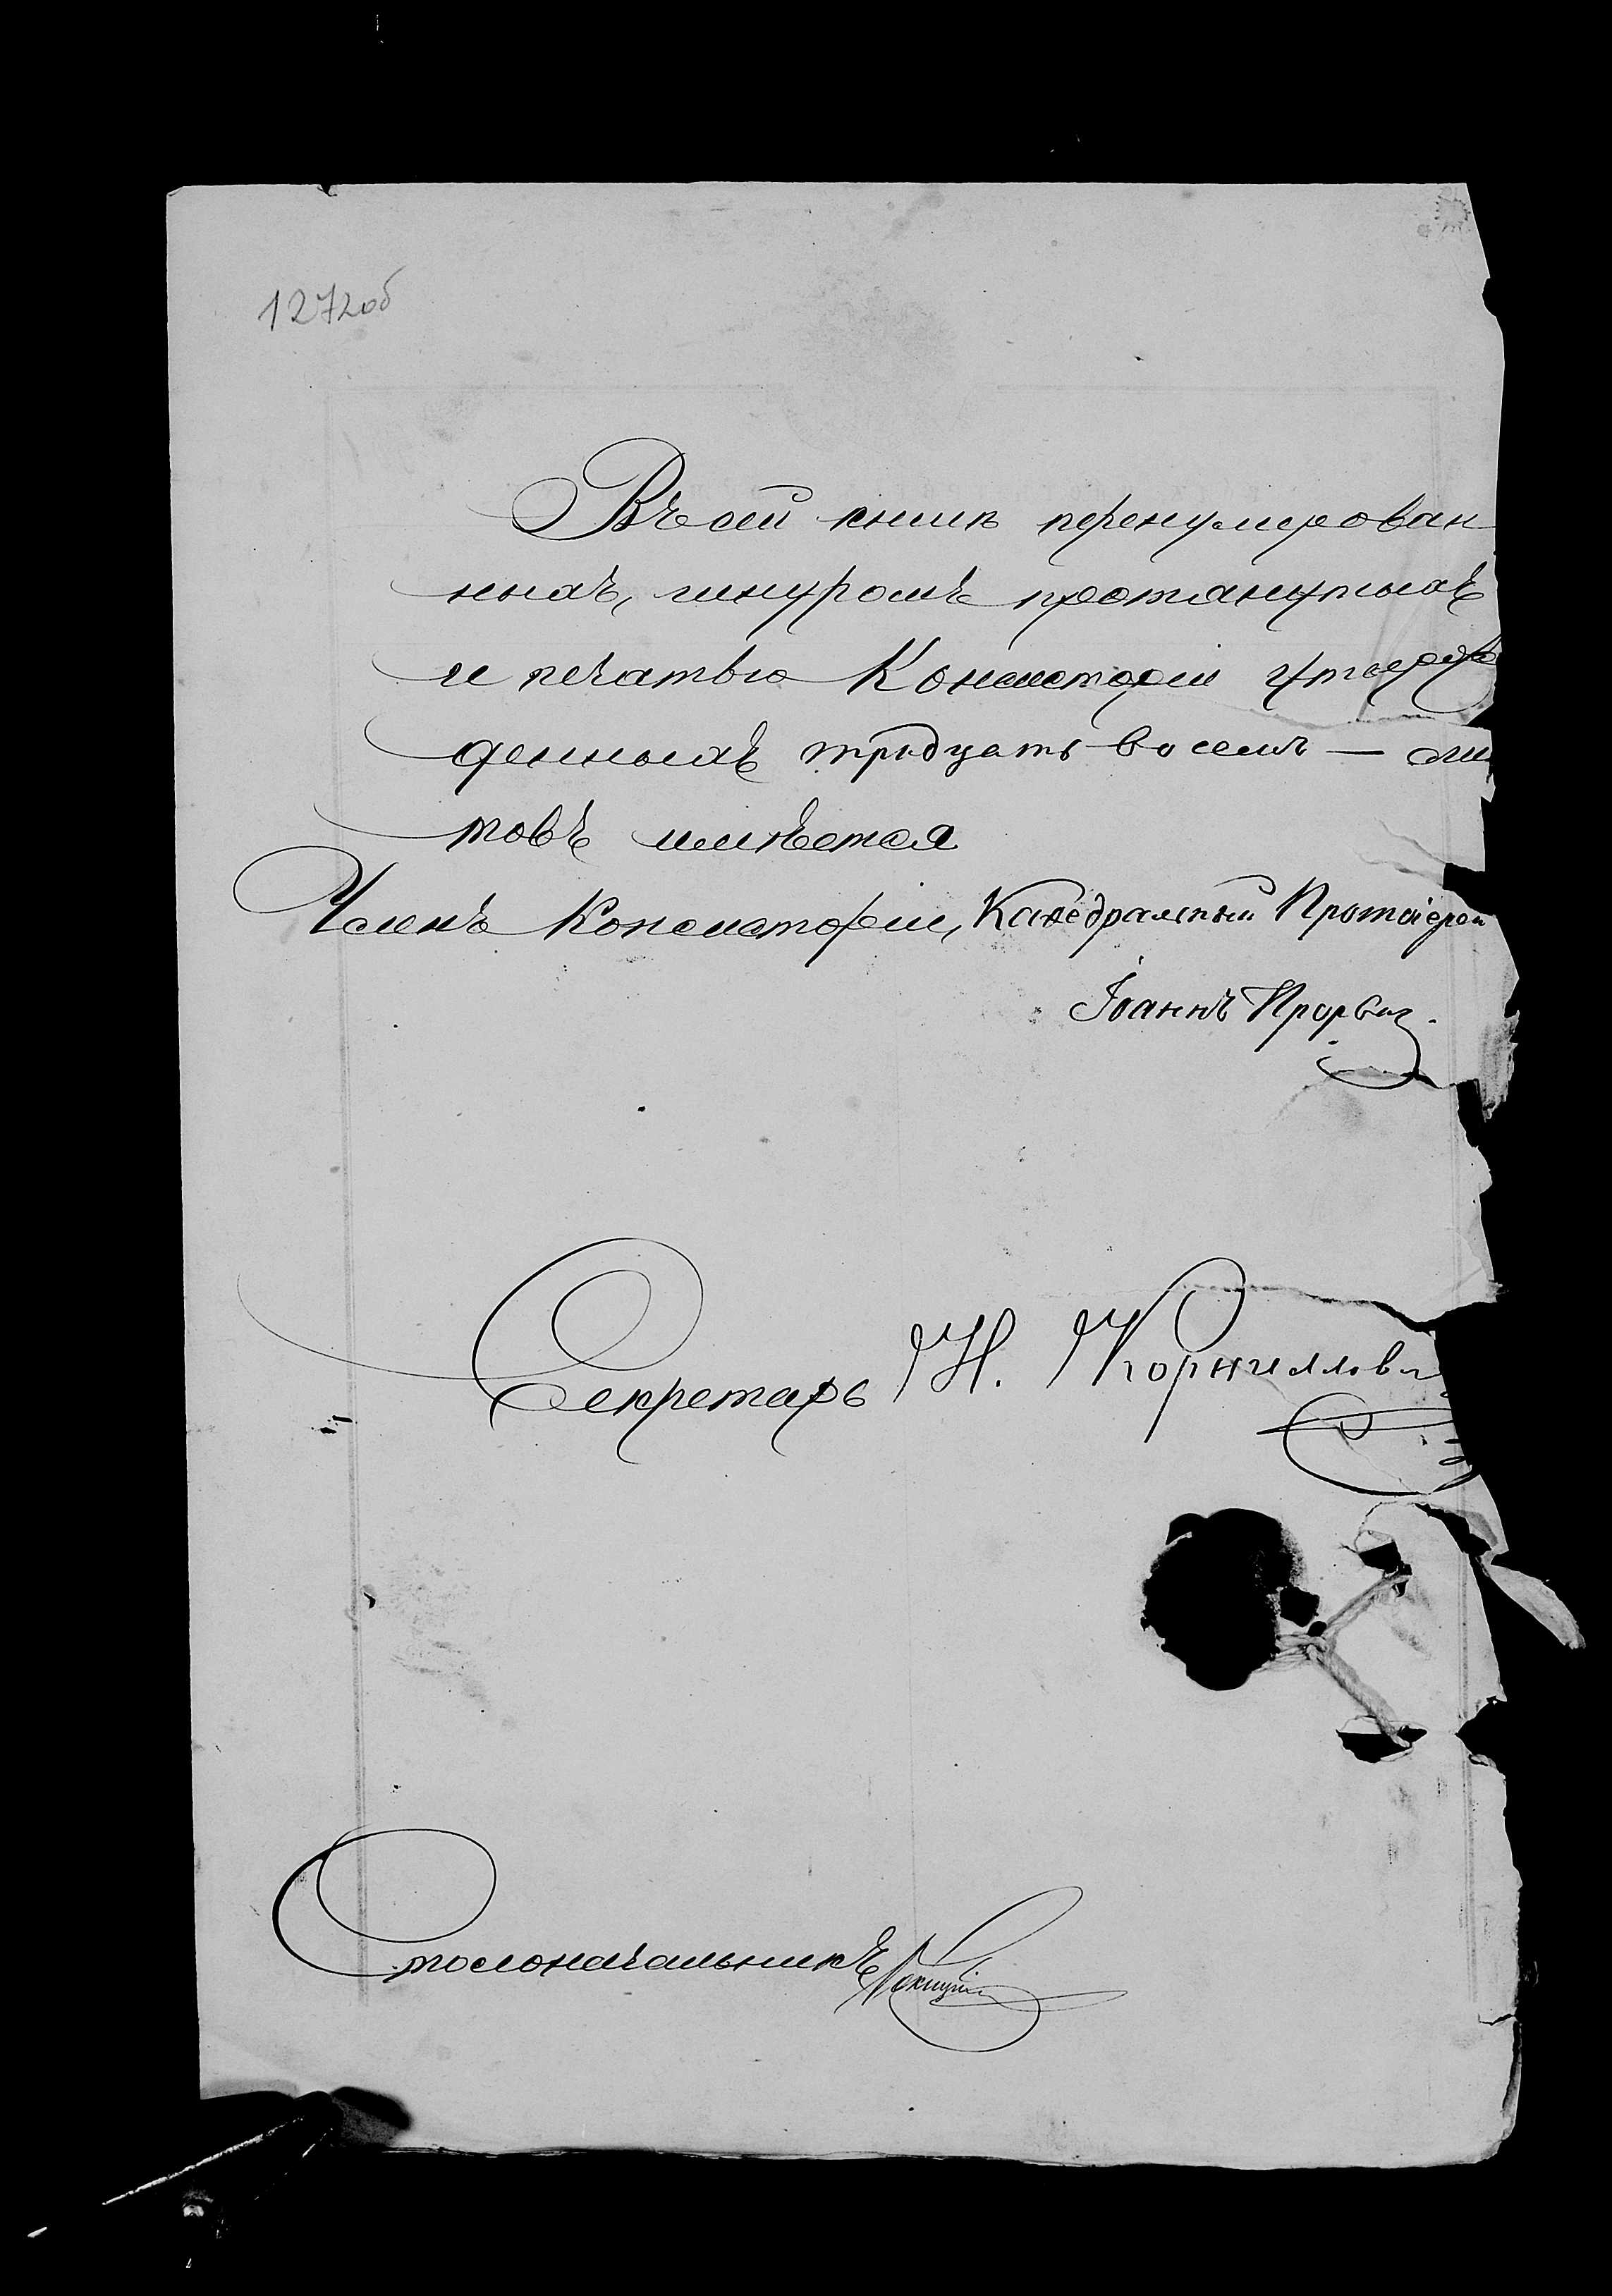 1272об
Въ сей книгѣ перенумерован
ныхъ, шнуромъ протянутыхъ
и печатью Консисторіи утверж
денныхъ тридцать восемь — лис
товъ имѣется
Членъ Консисторіи, Каѳедральный Протоіерей
Іоаннъ
Секретарь Н. Корнилові
Столоначальникъ